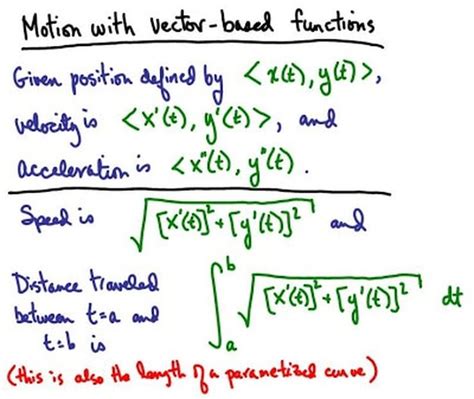 Motion with vector-based functions
Given position defined by <x(t), y(t)>,
velocity is <x'(t), y'(t)>, and
acceleration is <x"(t), y"(t)>.
Speed is √([x'(t)]² + [y'(t)]²) and
Distance traveled
between t=a and
t=b is ∫ₐᵇ √([x'(t)]² + [y'(t)]²) dt
(this is also the length of a parametized curve)